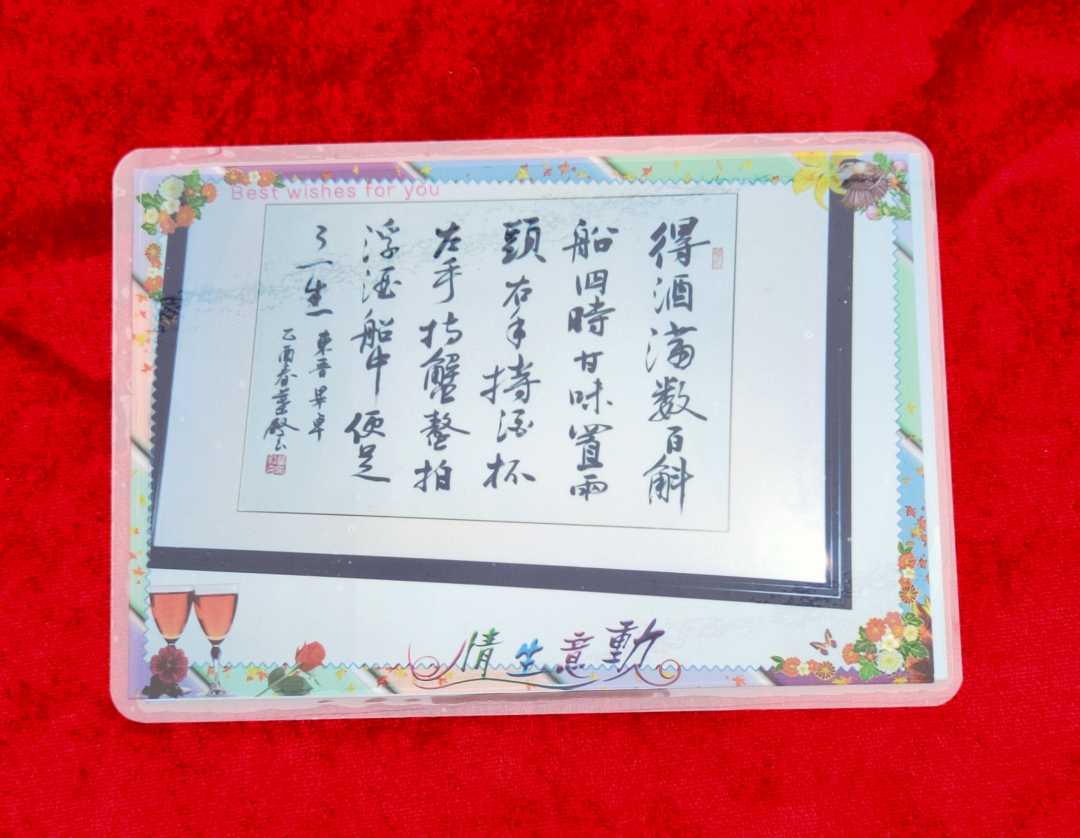 Best wishes for you
得酒满数百斛
船四時甘味置兩
頭右手持酒杯
左手持蟹螯拍
浮酒船中便足
了一生
東晋畢卓
乙酉春葉
情生意動